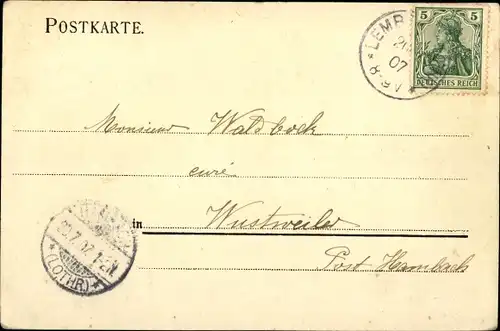 POSTKARTE.
5 5
DEUTSCHES REICH
LEMB
07
Monsieur Waldbock
curé
in Wustweiler
Post Hambach
(LOTHR.)